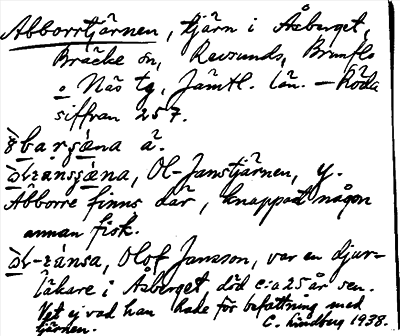 Abborrtjärnen, tjärn i Åsberget,
Bräcke sn, Revsunds, Brunflo
o Näs tg, Jämtl. län. — Röda
siffran 257.
ä.
Ol-Janstjärnen, y.
Abborre finns där, knappast någon
annan fisk.
Olof Jansson, var en djur-
läkare i Åsberget, död c:a 25 år sen.
Vet ej vad han hade för befattning med
tjärnen. C. Lindberg 1938.